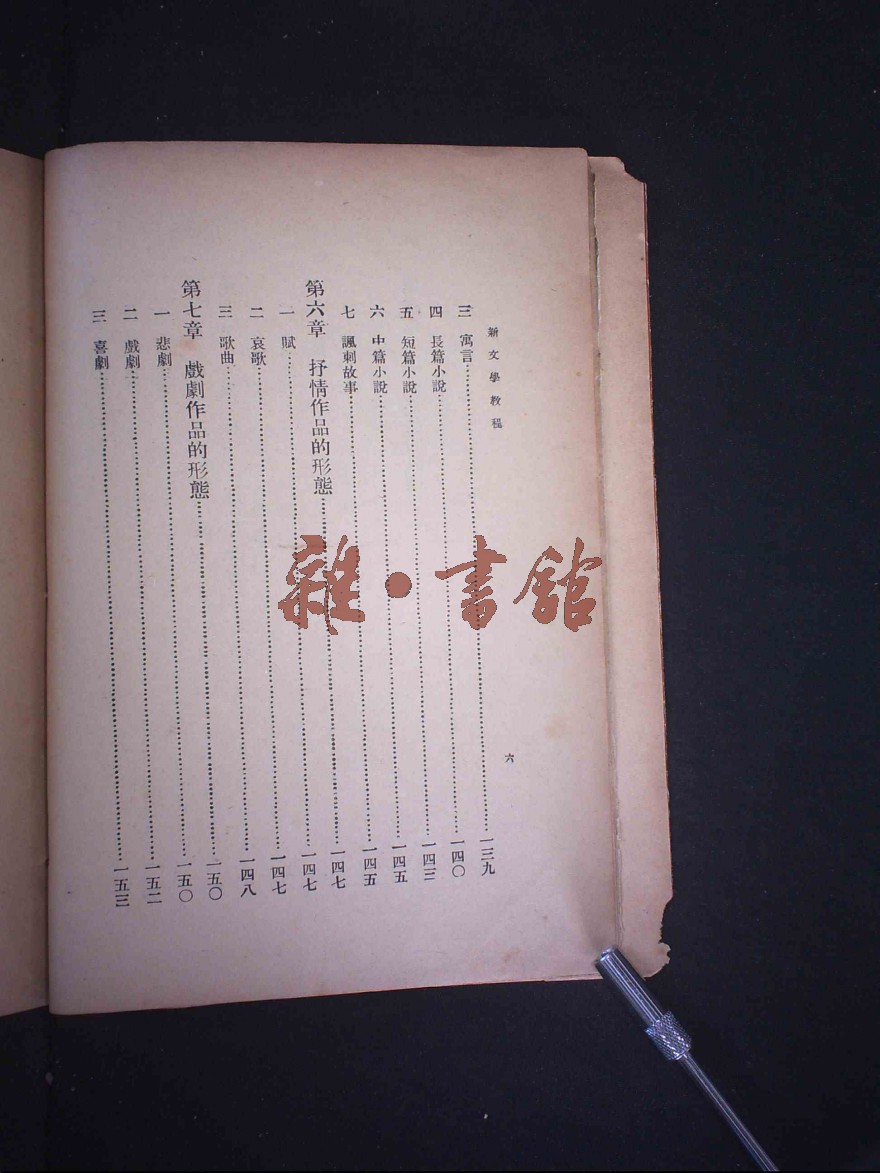 新文學教程
六
三 寓言……一三九
四 長篇小說……一四〇
五 短篇小說……一四三
六 中篇小說……一四五
七 諷刺故事……一四五
第六章 抒情作品的形態……一四七
一 賦……一四七
二 哀歌……一四七
三 歌曲……一四八
第七章 戲劇作品的形態……一五〇
一 悲劇……一五〇
二 戲劇……一五二
三 喜劇……一五三
雜·書館